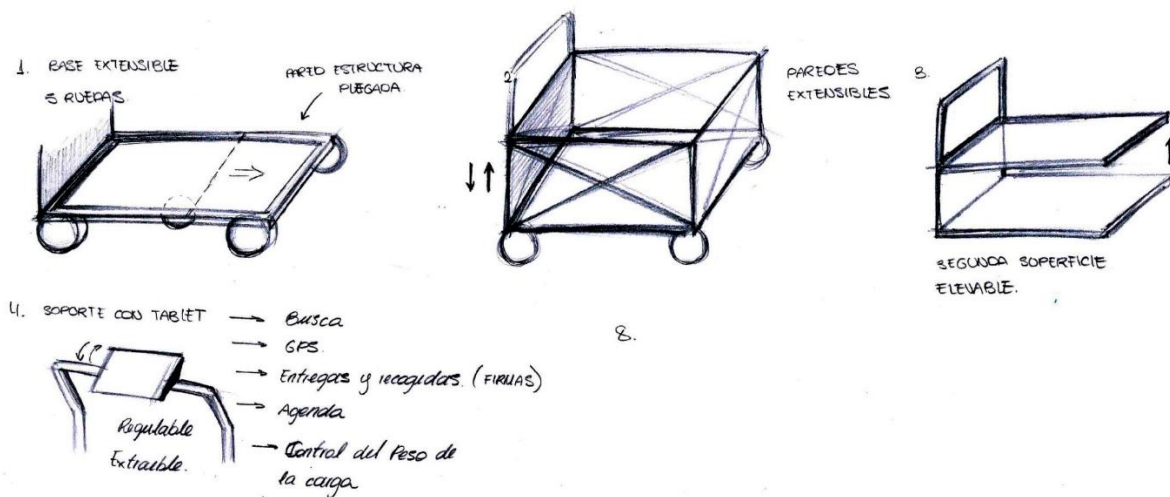 1. BASE EXTENSIBLE
5 RUEDAS.
PARED ESTRUCTURA
PLEGADA
2.
PAREDES
EXTENSIBLES
3.
SEGUNDA SUPERFICIE
ELEVABLE.
4. SOPORTE CON TABLET → Busca
→ GPS.
→ Entregas y recogidas. (FIRMAS)
→ Agenda
→ Control del Peso de
la carga
Regulable
Extraible.
8.